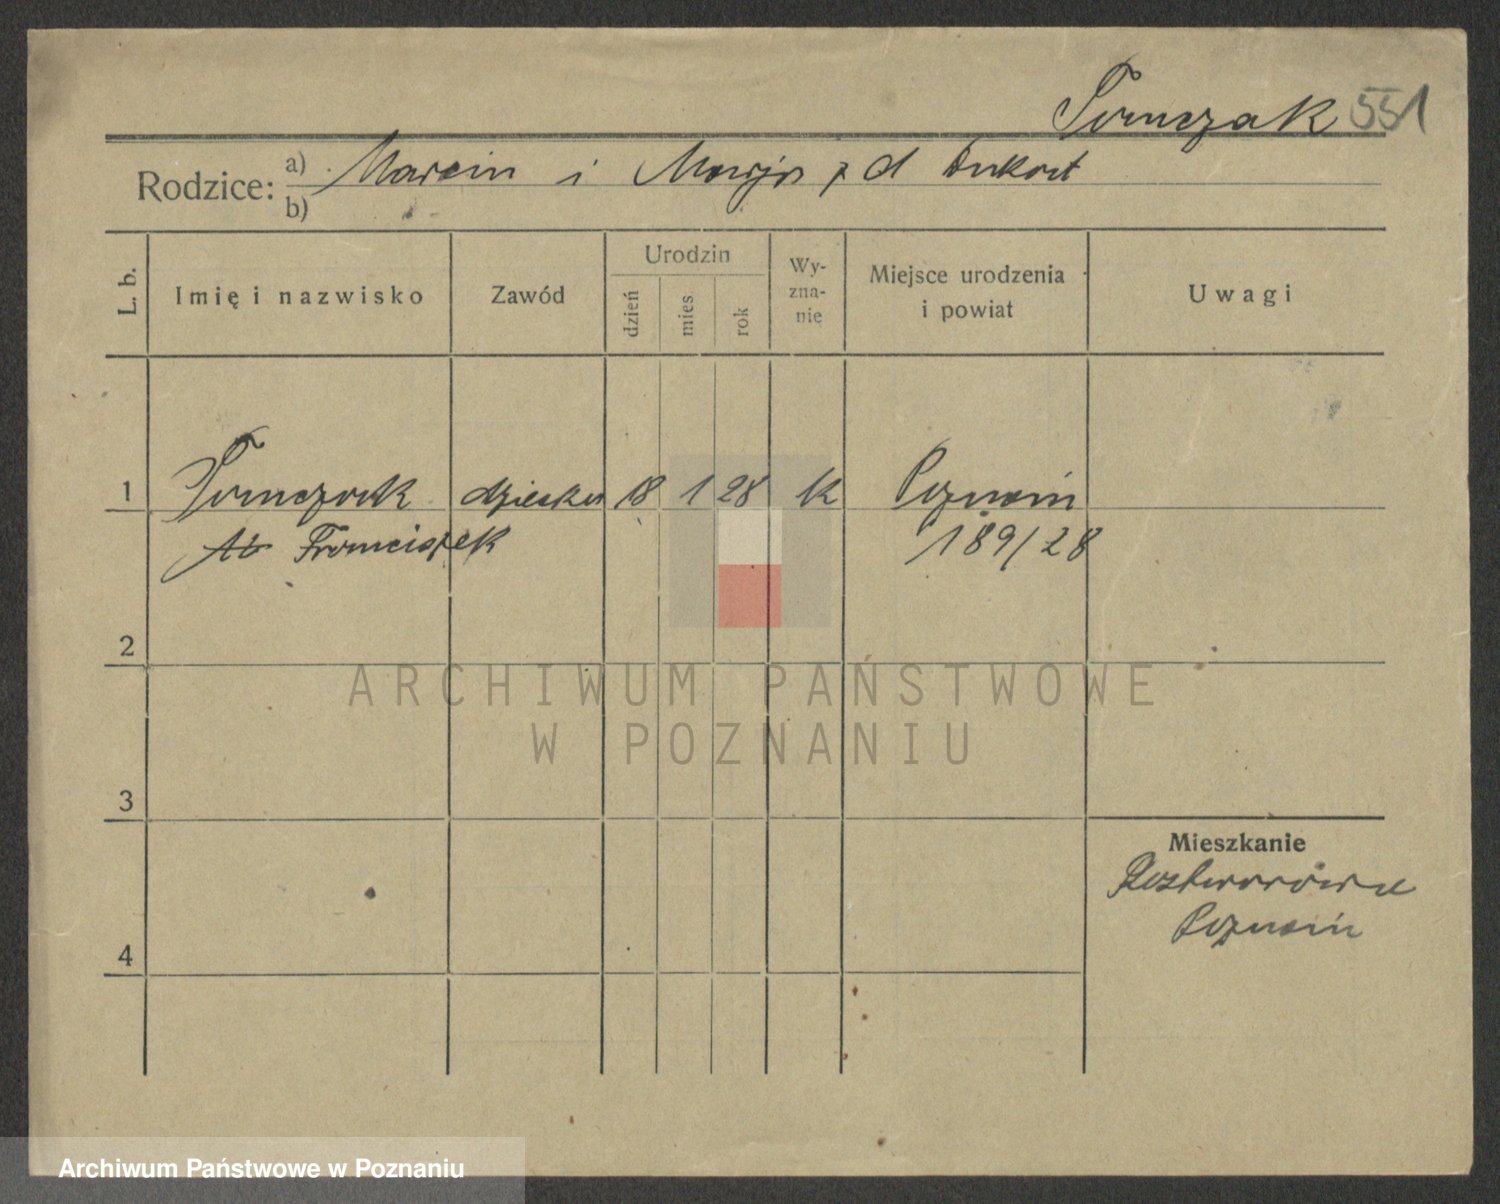 Tomczak 551
Rodzice: a) Marcin i Marja z d
b)
L. b.
Imię i nazwisko
Zawód
Urodzin
dzień
mies
rok
Wy-
zna-
nie
Miejsce urodzenia
i powiat
Uwagi
1 Tomczak dziecko 18 1 28 k Poznań
Franciszek 189/28
2
3
4
Mieszkanie
Poznań
ARCHIWUM PAŃSTWOWE
W POZNANIU
Archiwum Państwowe w Poznaniu